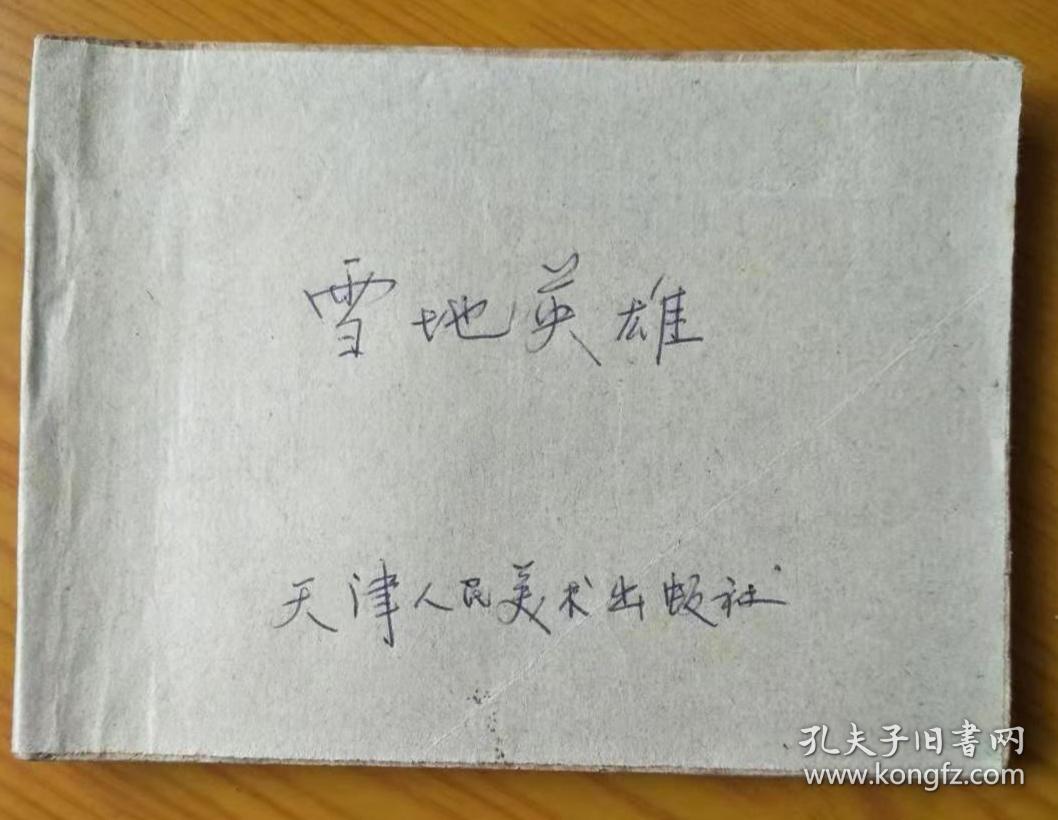 雪地英雄
天津人民美术出版社
孔夫子旧書网
www.kongfz.com